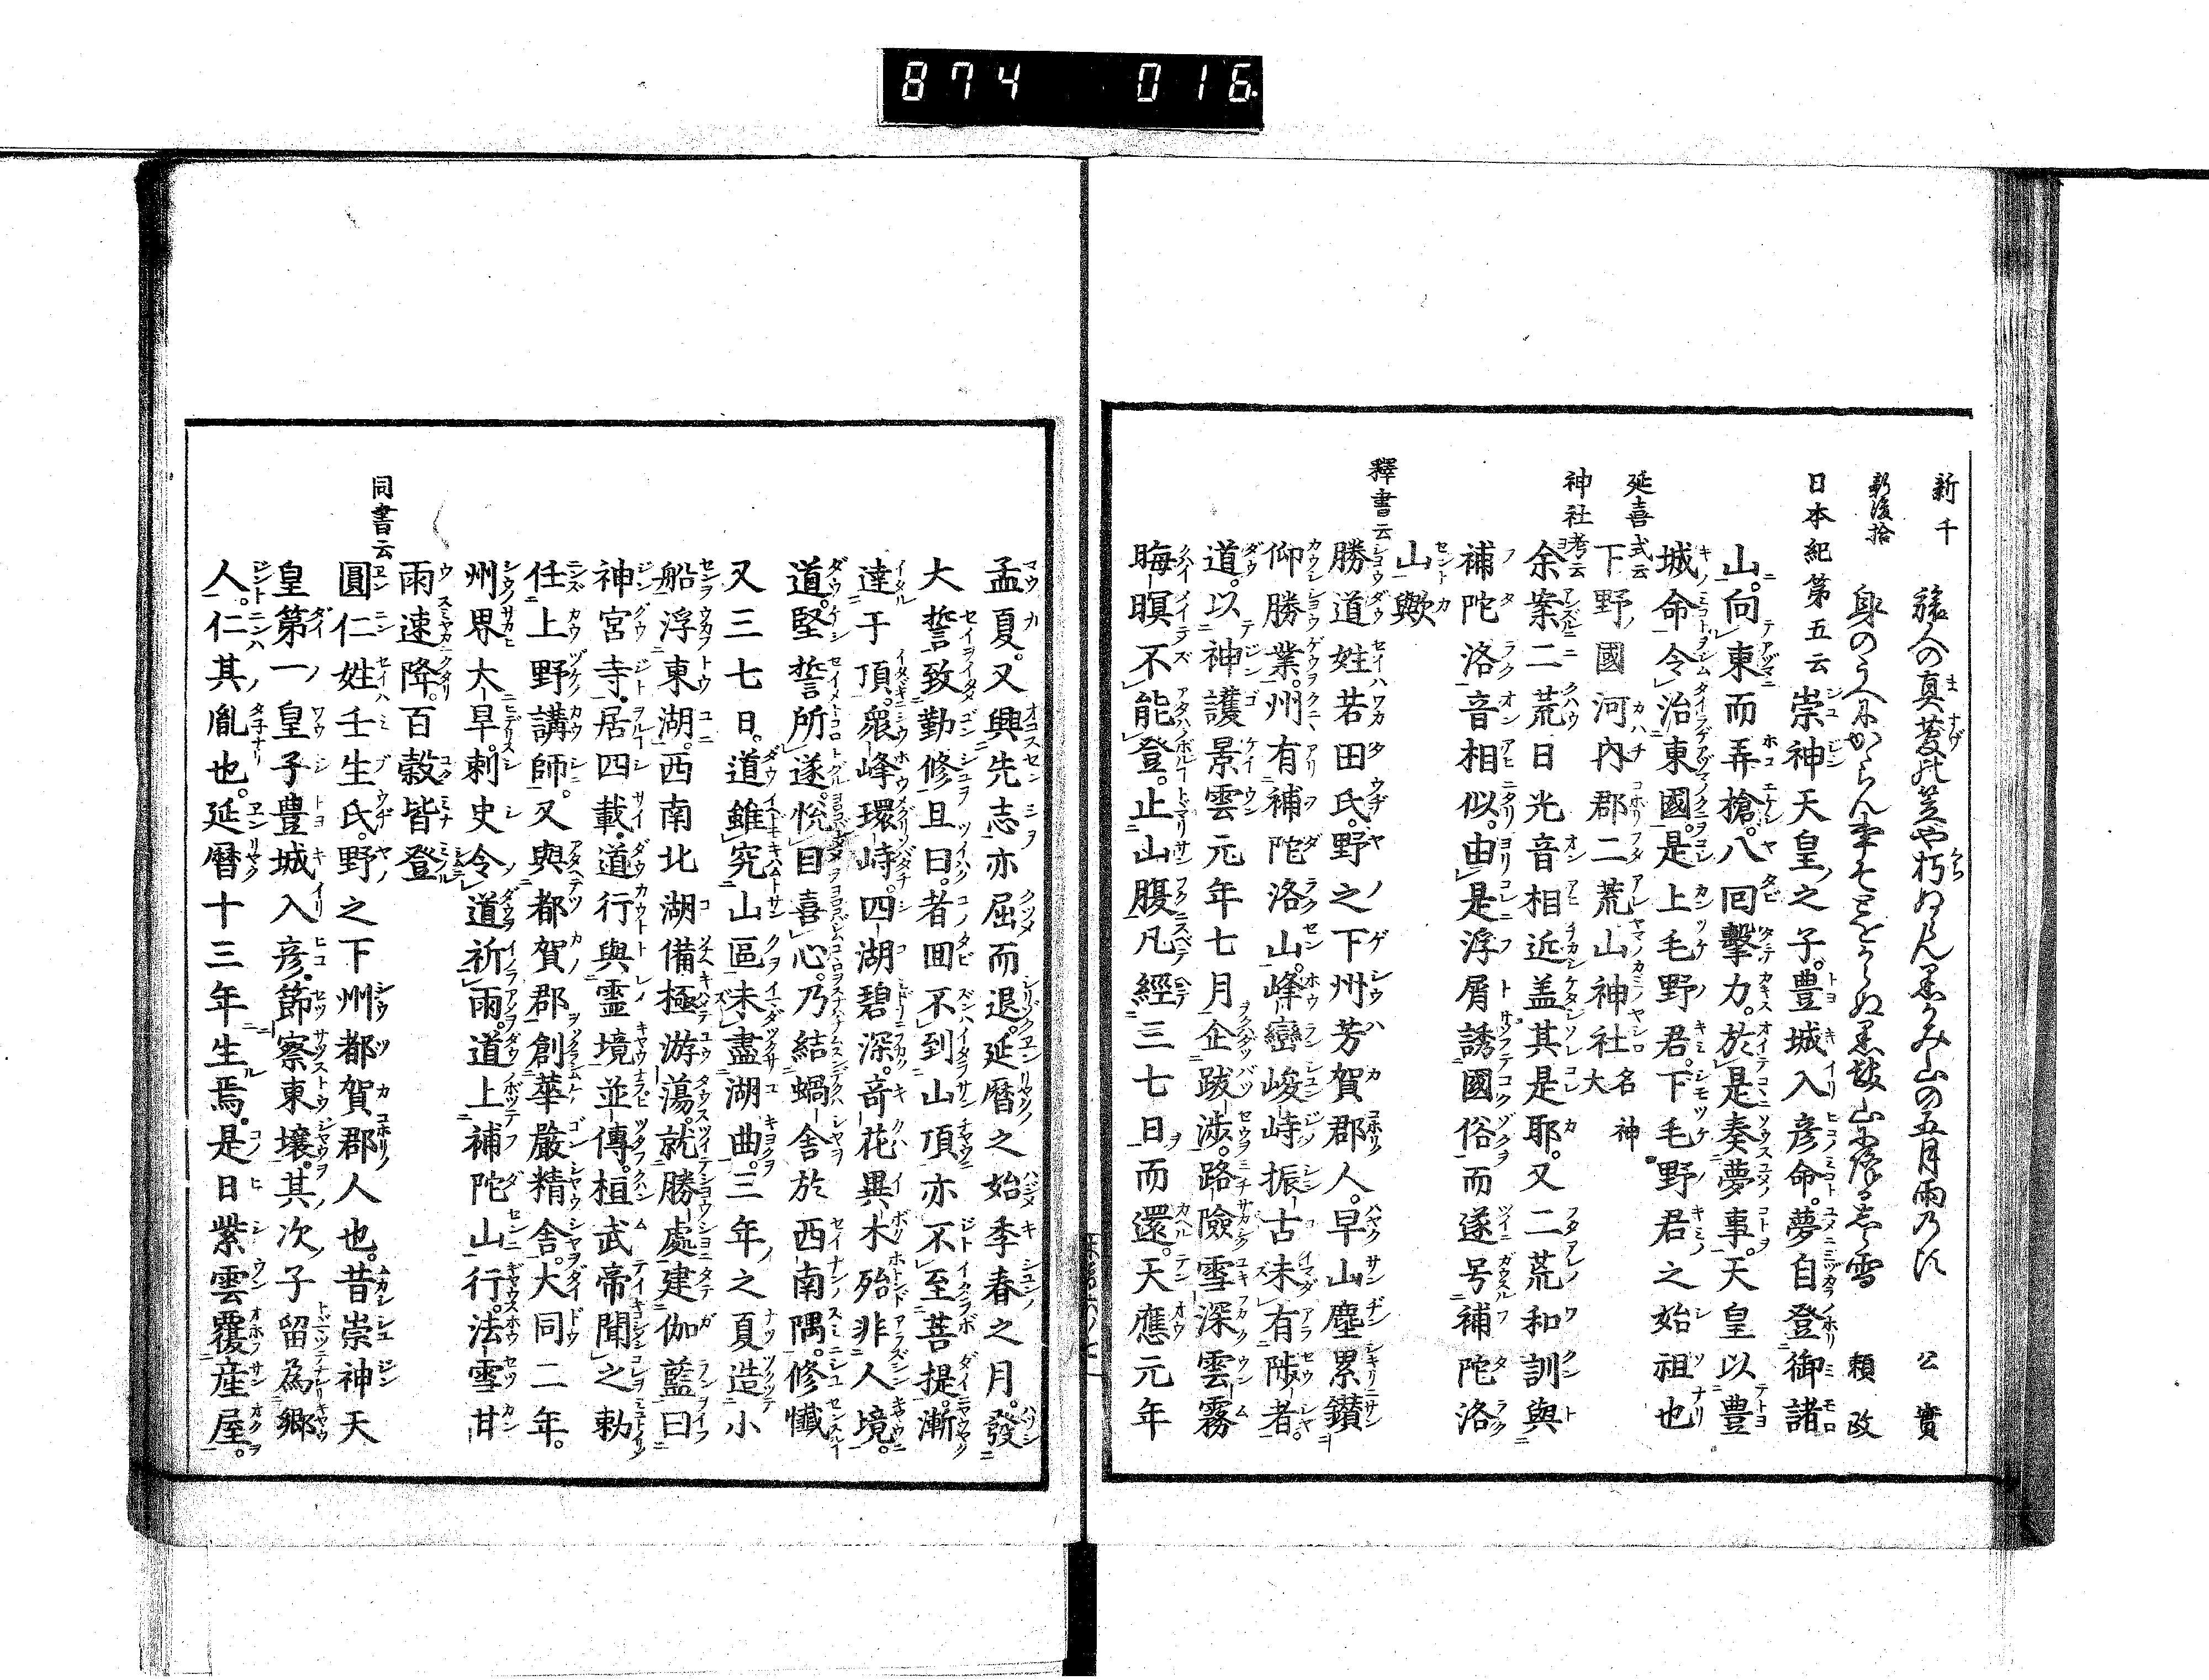 874 016
新千 旅人の真菅の笠や朽ぬらん黒かみ山の五月雨乃比 公實
新後拾 身のうへにかからん事そ遠からぬ黒髪山に降る志ら雪 頼政
日本紀第五云 崇神天皇之子。豊城入彦命。夢自登御諸
山。向東而弄槍。八回擊刀。於是奏夢事。天皇以豊
城命令治東國。是上毛野君。下毛野君之始祖也
延喜式云 下野國河内郡二荒山神社名神大
神社考云 余案二荒日光音相近盖其是耶。又二荒和訓與
補陀洛音相似。由是浮屠誘國俗而遂号補陀洛
山歟
釋書云 勝道姓若田氏。野之下州芳賀郡人。早山塵累鑚
仰勝業。州有補陀洛山。峰巒峻峙振古未有陟者。
道。以神護景雲元年七月企跋渉。路險雪深雲霧
晦暝不能登。止山腹凡經三七日而還。天應元年
孟夏。又興先志亦屈而退。延暦之始季春之月。發
大誓致勤修且曰。者囬不到山頂亦不至菩提。漸
達于頂。衆峰環峙。四湖碧深。竒花異木殆非人境。
道。堅誓所遂。悦目喜心。乃結蝸舍於西南隅。修懺
又三七日。道雖究山區未盡湖曲。三年之夏造小
船浮東湖。西南北湖備極游蕩。就勝處建伽藍曰
神宮寺。居四載。道行與霊境並傳。桓武帝聞之勅
任上野講師。又與都賀郡創華嚴精舍。大同二年。
州界大旱。刺史令道祈雨。道上補陀山行法雪甘
雨速降。百穀皆登
同書云 圓仁姓壬生氏。野之下州都賀郡人也。昔崇神天
皇第一皇子豊城入彦。節察東壤。其次子留為鄉
人。仁其胤也。延暦十三年生焉。是日紫雲覆産屋。